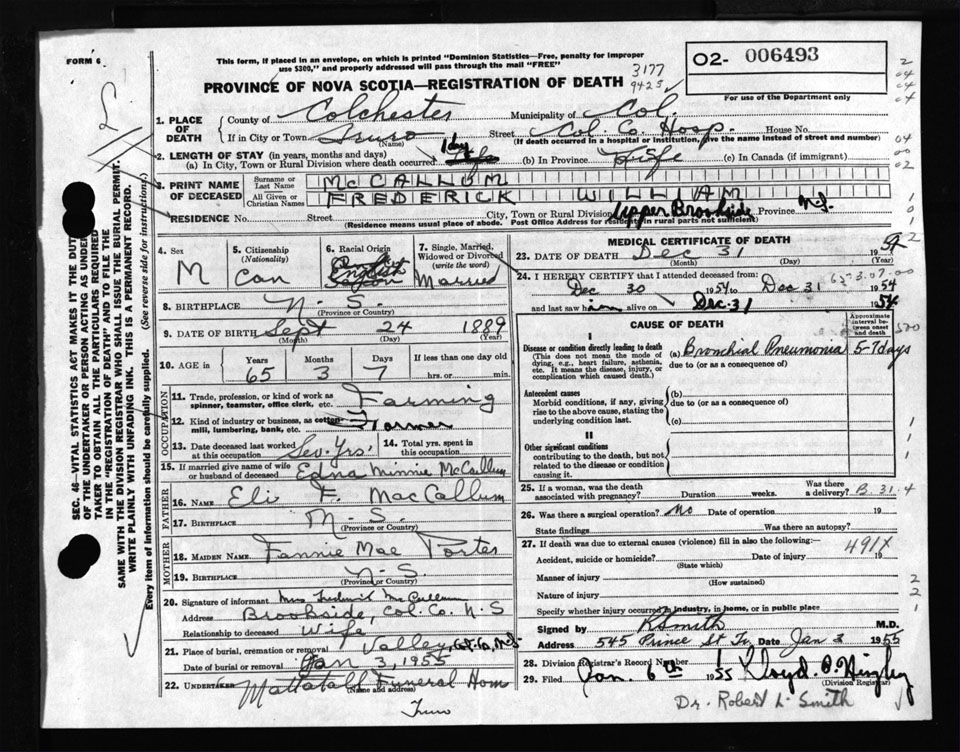 FORM 6
This form, if placed in an envelope, on which is printed "Dominion Statistics—Free, penalty for improper
use $300," and properly addressed will pass through the mail "FREE"
3177
9423
O2- 006493
For use of the Department only
PROVINCE OF NOVA SCOTIA—REGISTRATION OF DEATH
1. PLACE OF DEATH
County of Colchester Municipality of Col.
If in City or Town Truro (Name) Street Col. Co. Hosp. House No.
(If death occurred in a hospital or institution, give the name instead of street and number)
2. LENGTH OF STAY (in years, months and days)
(a) In City, Town or Rural Division where death occurred 1 day (b) In Province Life (c) In Canada (if immigrant)
3. PRINT NAME OF DECEASED
Surname or Last Name McCALLUM
All Given or Christian Names FREDERICK WILLIAM
RESIDENCE No. Street City, Town or Rural Division Upper Brookside Province N.S.
(Residence means usual place of abode. Post Office Address for residents in rural parts not sufficient)
4. Sex M
5. Citizenship (Nationality) Can
6. Racial Origin English
7. Single, Married, Widowed or Divorced (write the word) Married
8. BIRTHPLACE N-S. (Province or Country)
9. DATE OF BIRTH Sept 24 1889
(Month) (Day) (Year)
10. AGE in Years Months Days If less than one day old
65 3 7 hrs. or min.
OCCUPATION
11. Trade, profession, or kind of work as spinner, teamster, office clerk, etc. Farming
12. Kind of industry or business, as cotton mill, lumbering, bank, etc. Farmer
13. Date deceased last worked at this occupation Sev. Yrs.
14. Total yrs. spent in this occupation
15. If married give name of wife or husband of deceased Edna Minnie McCallum
FATHER
16. NAME Eli F. MacCallum
17. BIRTHPLACE N-S. (Province or Country)
MOTHER
18. MAIDEN NAME Fannie Mae Porter
19. BIRTHPLACE N-S. (Province or Country)
20. Signature of informant Mrs Frederick McCallum
Address Brookside, Col. Co. N-S
Relationship to deceased Wife
21. Place of burial, cremation or removal Valley, Col. Co, N-S
Date of burial or removal Jan 3, 1955
22. UNDERTAKER Mattatall Funeral Home
(Name and address)
Truro
MEDICAL CERTIFICATE OF DEATH
23. DATE OF DEATH Dec 31 1954
(Month) (Day) (Year)
24. I HEREBY CERTIFY that I attended deceased from:
Dec 30 1954 to Dec 31 1954
and last saw him alive on Dec. 31 1954
CAUSE OF DEATH
Approximate interval between onset and death
I
Disease or condition directly leading to death
(This does not mean the mode of dying, e.g., heart failure, asthenia, etc. It means the disease, injury, or complication which caused death.)
(a) Bronchial Pneumonia 5-7 days
due to (or as a consequence of)
Antecedent causes
Morbid conditions, if any, giving rise to the above cause, stating the underlying condition last.
(b)
due to (or as a consequence of)
(c)
II
Other significant conditions
Contributing to the death, but not related to the disease or condition causing it.
25. If a woman, was the death associated with pregnancy? Duration weeks. Was there a delivery? B. 31. 4
26. Was there a surgical operation? No Date of operation 19
State findings Was there an autopsy?
27. If death was due to external causes (violence) fill in also the following:— 491X
Accident, suicide or homicide? Date of injury 19
(State which)
Manner of injury
(How sustained)
Nature of injury
Specify whether injury occurred in industry, in home, or in public place
Signed by R Smith M.D.
Address 545 Prince St Tr. Date Jan 3 1955
28. Division Registrar's Record Number 1
29. Filed Jan. 6th 1955
(Division Registrar)
Dr. Robert L. Smith
SEC. 46—VITAL STATISTICS ACT MAKES IT THE DUTY
OF THE UNDERTAKER OR PERSON ACTING AS UNDER-
TAKER TO OBTAIN ALL THE PARTICULARS REQUIRED
IN THE "REGISTRATION OF DEATH" AND TO FILE THE
SAME WITH THE DIVISION REGISTRAR WHO SHALL ISSUE THE BURIAL PERMIT.
WRITE PLAINLY WITH UNFADING INK. THIS IS A PERMANENT RECORD.
Every item of information should be carefully supplied. (See reverse side for instructions.)